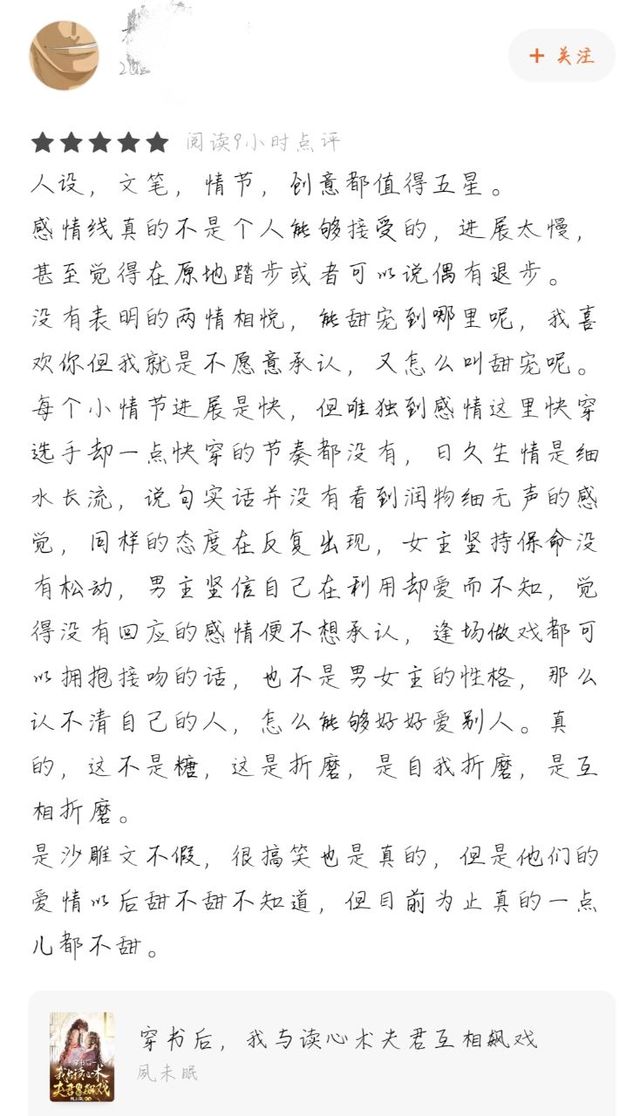 + 关注
★★★★★ 阅读9小时点评
人设，文笔，情节，创意都值得五星。
感情线真的不是个人能够接受的，进展太慢，
甚至觉得在原地踏步或者可以说偶有退步。
没有表明的两情相悦，能甜宠到哪里呢，我喜
欢你但我就是不愿意承认，又怎么叫甜宠呢。
每个小情节进展是快，但唯独到感情这里快穿
选手却一点快穿的节奏都没有，日久生情是细
水长流，说句实话并没有看到润物细无声的感
觉，同样的态度在反复出现，女主坚持保命没
有松动，男主坚信自己在利用却爱而不知，觉
得没有回应的感情便不想承认，逢场做戏都可
以拥抱接吻的话，也不是男女主的性格，那么
认不清自己的人，怎么能够好好爱别人。真
的，这不是糖，这是折磨，是自我折磨，是互
相折磨。
是沙雕文不假，很搞笑也是真的，但是他们的
爱情以后甜不甜不知道，但目前为止真的一点
儿都不甜。
穿书后，我与读心术夫君互相飙戏
夙未眠